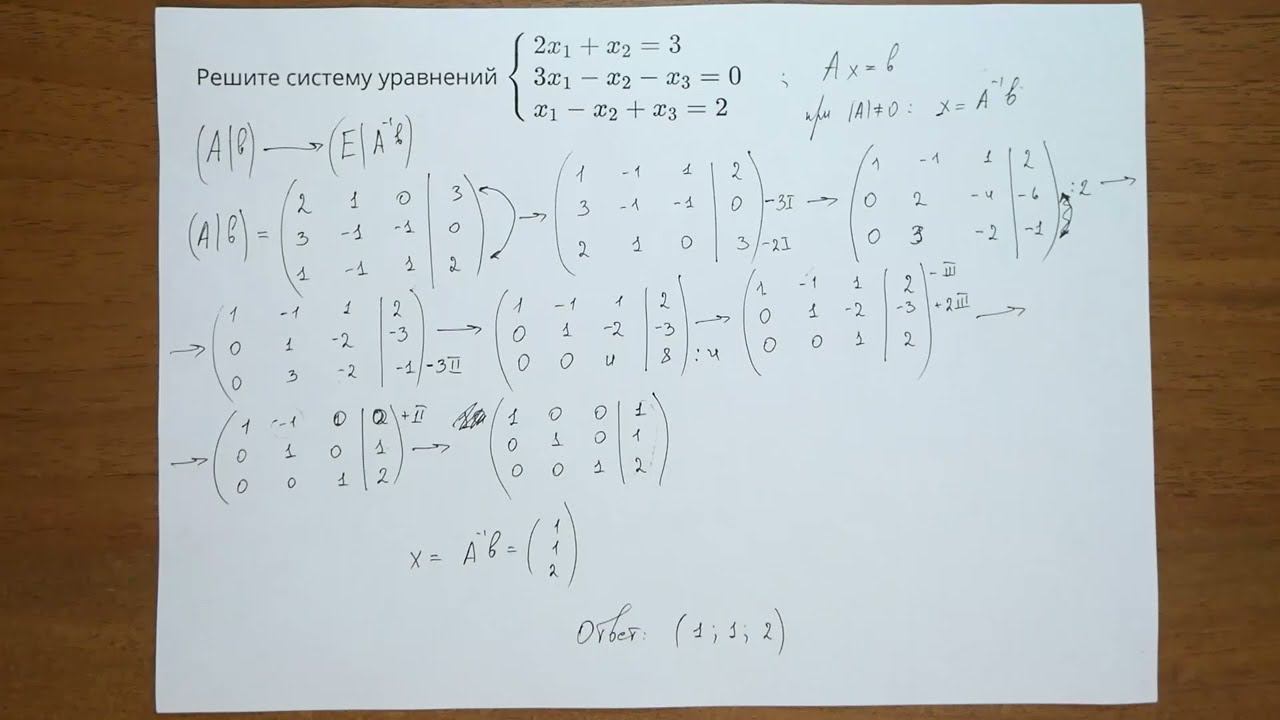 Решите систему уравнений { 2x₁ + x₂ = 3
3x₁ − x₂ − x₃ = 0
x₁ − x₂ + x₃ = 2
; Ax = b
при |A|≠0: x = A⁻¹b
(A|b) → (E|A⁻¹b)
(A|b) = ( 2 1 0 | 3
3 -1 -1 | 0
1 -1 1 | 2 )
→ ( 1 -1 1 | 2
3 -1 -1 | 0
2 1 0 | 3 ) -3I -2I
→ ( 1 -1 1 | 2
0 2 -4 | -6
0 3 -2 | -1 ) :2 →
→ ( 1 -1 1 | 2
0 1 -2 | -3
0 3 -2 | -1 ) -3II
→ ( 1 -1 1 | 2
0 1 -2 | -3
0 0 4 | 8 ) :4
→ ( 1 -1 1 | 2
0 1 -2 | -3
0 0 1 | 2 ) -III +2III →
→ ( 1 -1 0 | 0
0 1 0 | 1
0 0 1 | 2 ) +II
→ ( 1 0 0 | 1
0 1 0 | 1
0 0 1 | 2 )
x = A⁻¹b = ( 1
1
2 )
Ответ: (1; 1; 2)